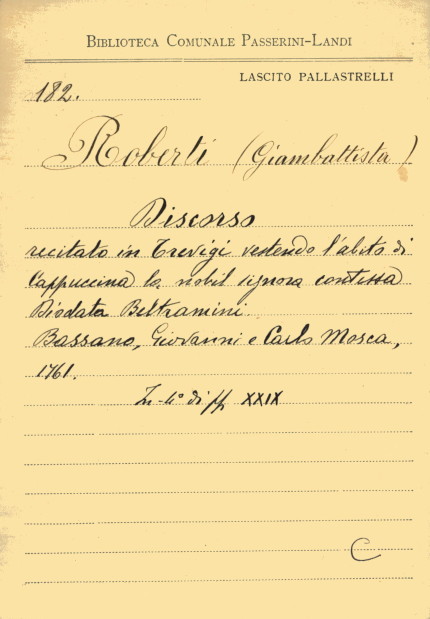 BIBLIOTECA COMUNALE PASSERINI-LANDI
LASCITO PALLASTRELLI
182.
Roberti (Giambattista)
Discorso
recitato in Trevigi vestendo l'abito di
Cappuccina la nobil signora contessa
Diodata Beltramini.
Bassano, Giovanni e Carlo Mosca,
1761.
In-4° di pp XXIX
C